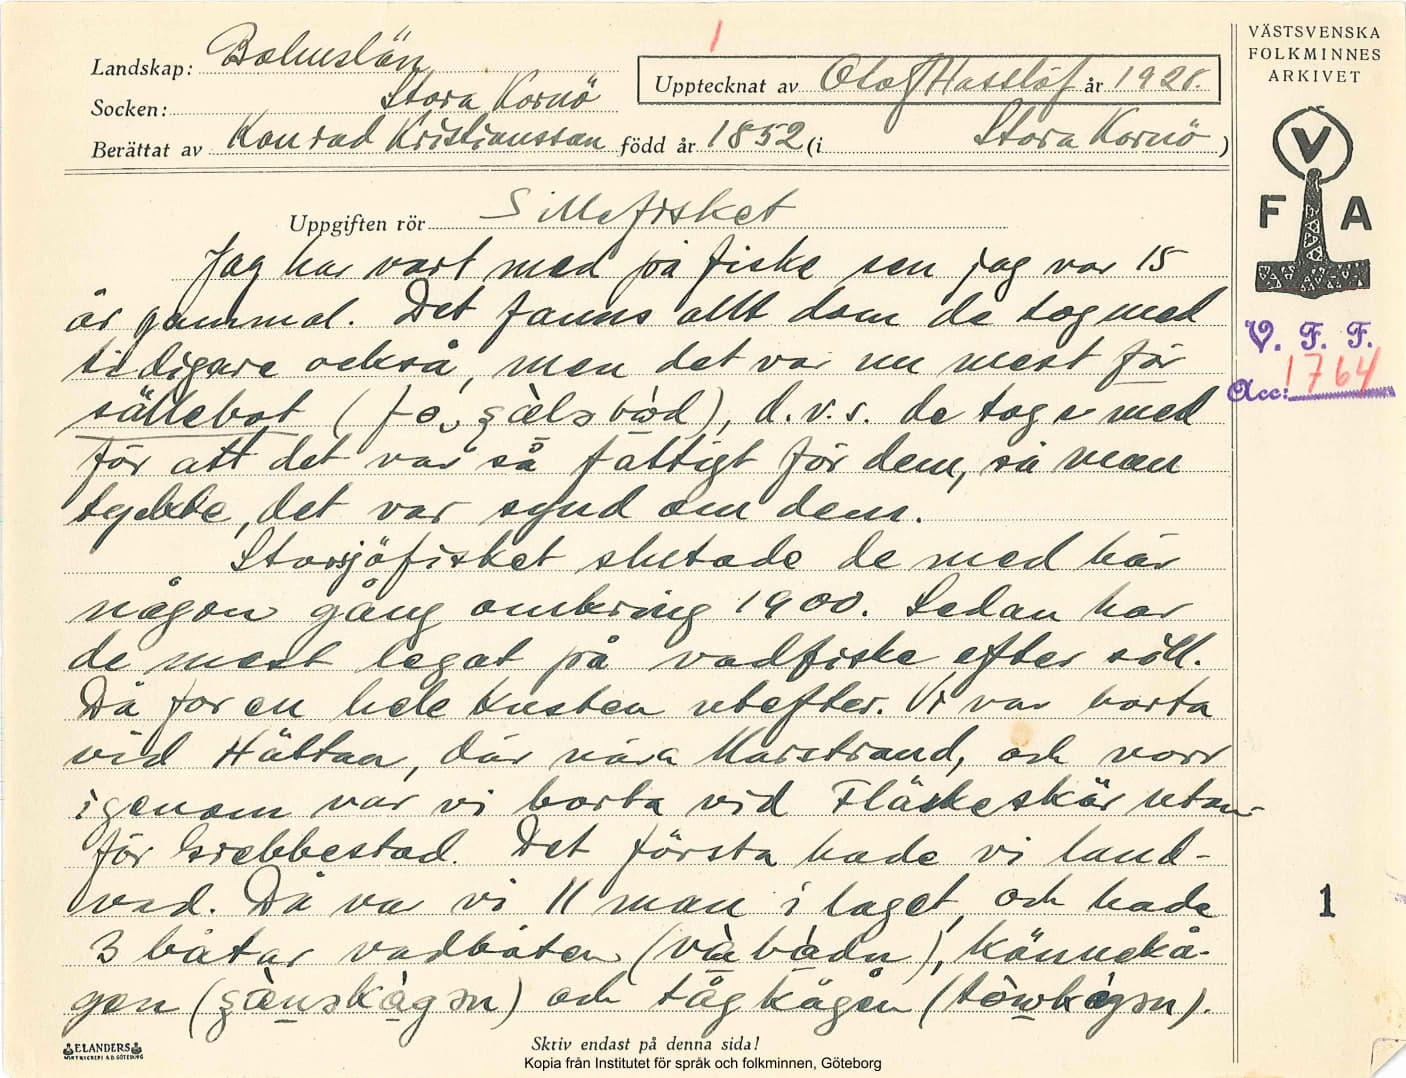 1
VÄSTSVENSKA
FOLKMINNES
ARKIVET
Landskap: Bohuslän
Upptecknat av Olof Hasslöf år 1928.
Socken: Stora Kornö
Berättat av Konrad Kristiansson född år 1852 (i Stora Kornö)
V
F A
Uppgiften rör Sillefisket
Jag har vart med på fiske sen jag var 15
år gammal. Det fanns allt dom de tog med
tidigare också, men det var nu mest för
sällebot (        ), d.v.s. de togs med
för att det var så fattigt för dem, så man
tyckte, det var synd om dem.
Storsjöfisket slutade de med här
någon gång omkring 1900. Sedan har
de mest legat på vadfiske efter sill.
Då for en hele kusten utefter. Vi var borta
vid Hättan, där nära Marstrand, och norr
igenom var vi borta vid Fläskeskär utan-
för Grebbestad. Det första hade vi land-
vad. Då var vi 11 man i laget, och hade
3 båtar vadbåten (vàbàdn), känneka-
gen (        ) och tågkågen (        ).
V. F. F.
Acc: 1764
1
ELANDERS
GÖTEBORG
Skriv endast på denna sida!
Kopia från Institutet för språk och folkminnen, Göteborg